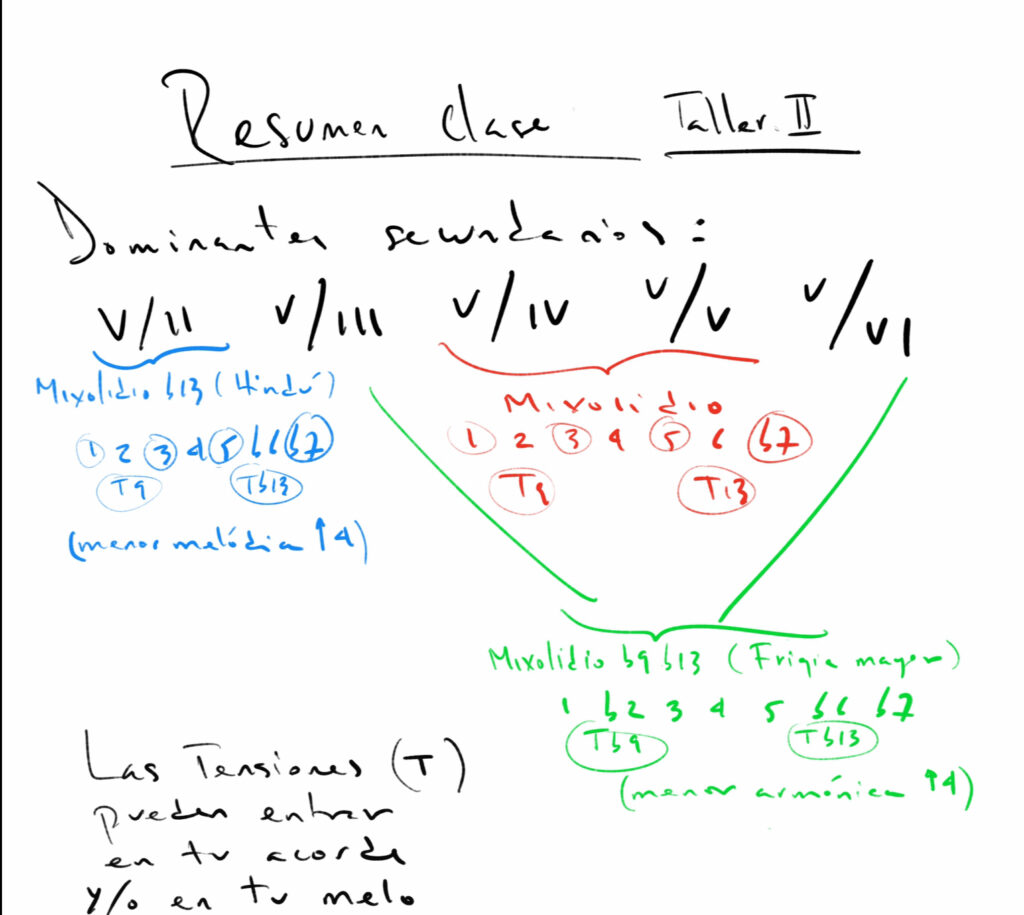 Resumen clase Taller II
Dominantes secundarios:
V/II V/III V/IV V/V V/VI
Mixolidio b13 (Hindú)
1 2 3 4 5 b6 b7
T9 Tb13
(menor melódica ↑4)
Mixolidio
1 2 3 4 5 6 b7
T9 T13
Mixolidio b9 b13 (Frigia mayor)
1 b2 3 4 5 b6 b7
Tb9 Tb13
(menor armónica ↑4)
Las Tensiones (T)
pueden entrar
en tu acorde
y/o en tu melo